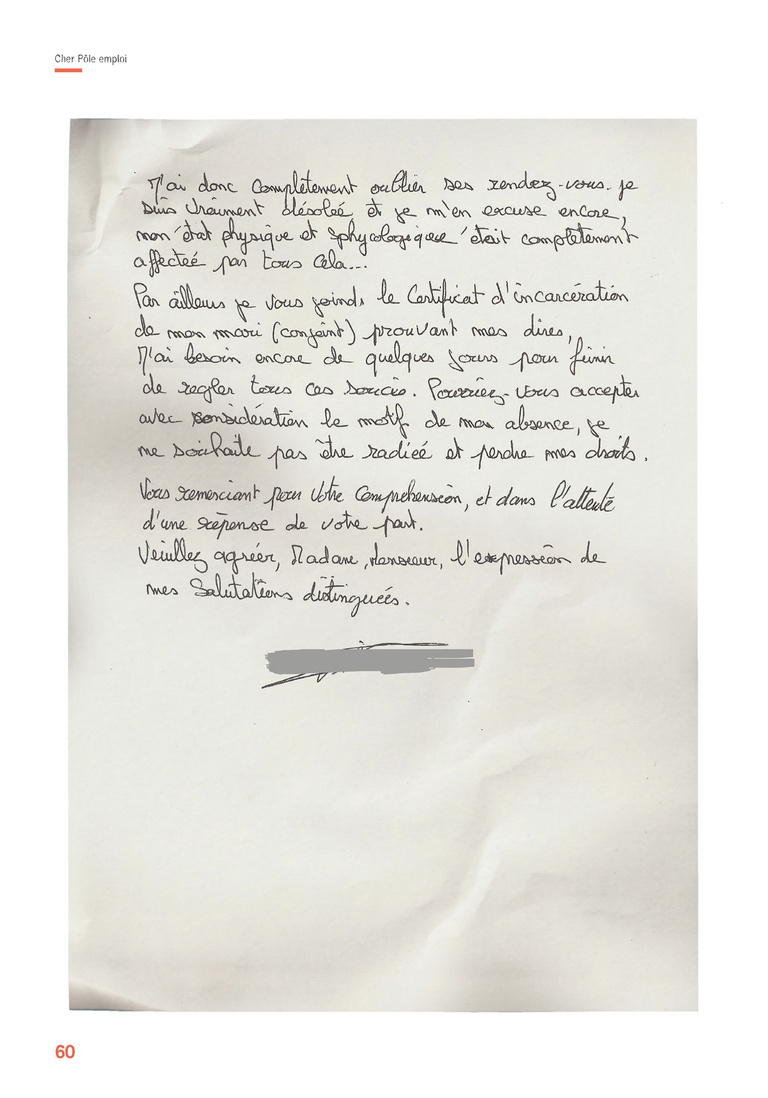 Cher Pôle emploi
J'ai donc complètement oublier ses rendez-vous. je
suis vraiment désoleé et je m'en excuse encore,
mon état physique et sphycologiquee était complètement
affecteé par tous cela...
Par ailleurs je vous joinds le Certificat d'incarcération
de mon mari (conjoint) prouvant mes dires,
J'ai besoin encore de quelques jours pour finir
de regler tous ces soucis. Pourriez-vous accepter
avec considération le motif de mon absence, je
ne souhaite pas être radieé et perdre mes droits.
Vous remerciant pour votre compréhension, et dans l'attente
d'une réponse de votre part.
Veuillez agréer, Madame, Monsieur, l'expression de
mes Salutations distinguées.
60